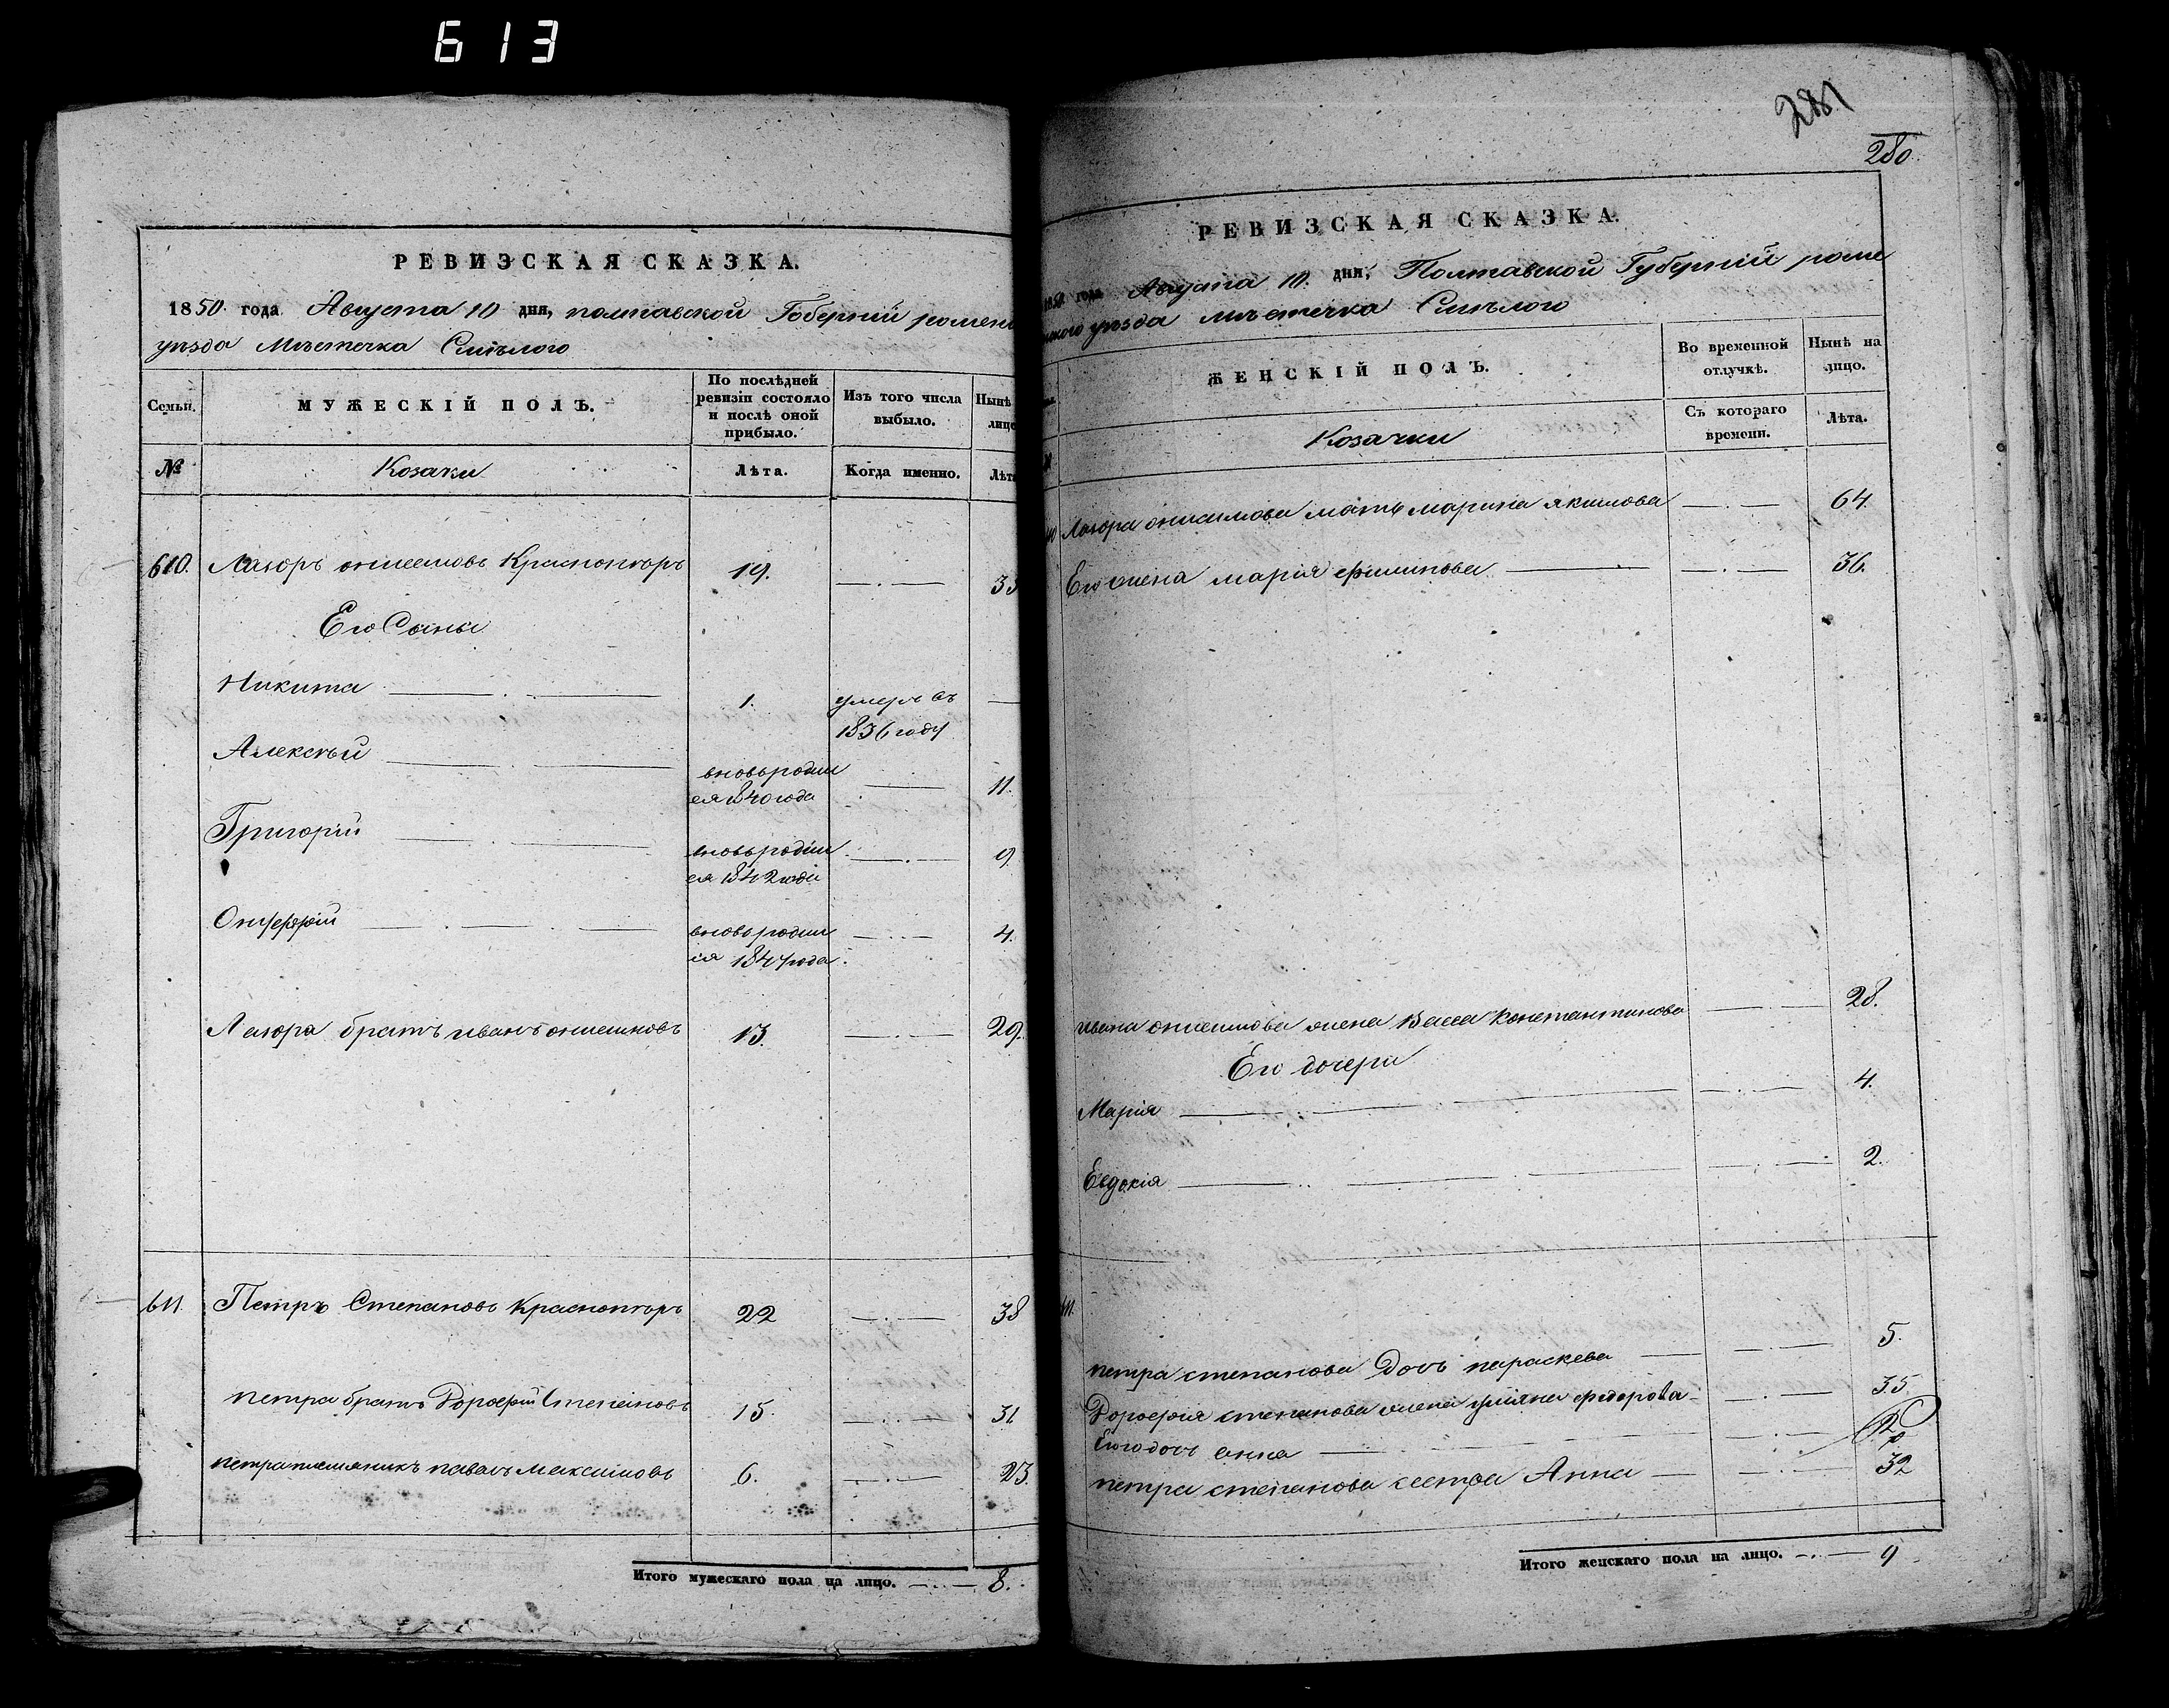 613
РЕВИЗСКАЯ СКАЗКА.
1850 года Августа 10 дня, полтавской Гоберніи ромен
уѣзда Мѣстечка Смѣлого
Семьи. МУЖЕСКІЙ ПОЛЪ. По послѣдней ревизіи состояло и послѣ оной прибыло. Изъ того числа выбыло. Нынѣ лицо
№ Козаки Лѣта. Когда именно. Лѣт
610. Лазоръ онисимовъ Красноперъ 19.
Его Сыны
Никита 1. умеръ въ
1836 году
Алексѣй вновьродил
ся 1840 года 11.
Григорій вновьродил
ся 1842 года 9.
Онуфрій вновьродил
ся 1847 года 4.
Лазора братъ иванъ онисимовъ 13. 29.
611. Петръ Степановъ Красноперъ 22 38
петра братъ Дорофей Степановъ 15. 31
петра племяникъ павелъ максимовъ 6. 23.
Итого мужескаго пола на лицо. 8.
281
280
РЕВИЗСКАЯ СКАЗКА.
года Августа 10. дня, Полтавской Губерніи роме
уѣзда мѣстечка Смѣлого
ЖЕНСКІЙ ПОЛЪ. Во временной отлучкѣ. Нынѣ на лицо.
Козачки Съ котораго времени. Лѣта.
Лазора онисимова мать марина якимова 64.
Его жена марія филипова 36.
ивана онисимова жена Васса Константинова 28.
Его дочери
Марія 4.
Евдокія 2.
611.
петра степанова Дочь параскева 5.
Дорофея степанова жена уліяна федорова 35
Его дочь анна
петра степанова сестра Анна 32
Итого женскаго пола на лицо. 9